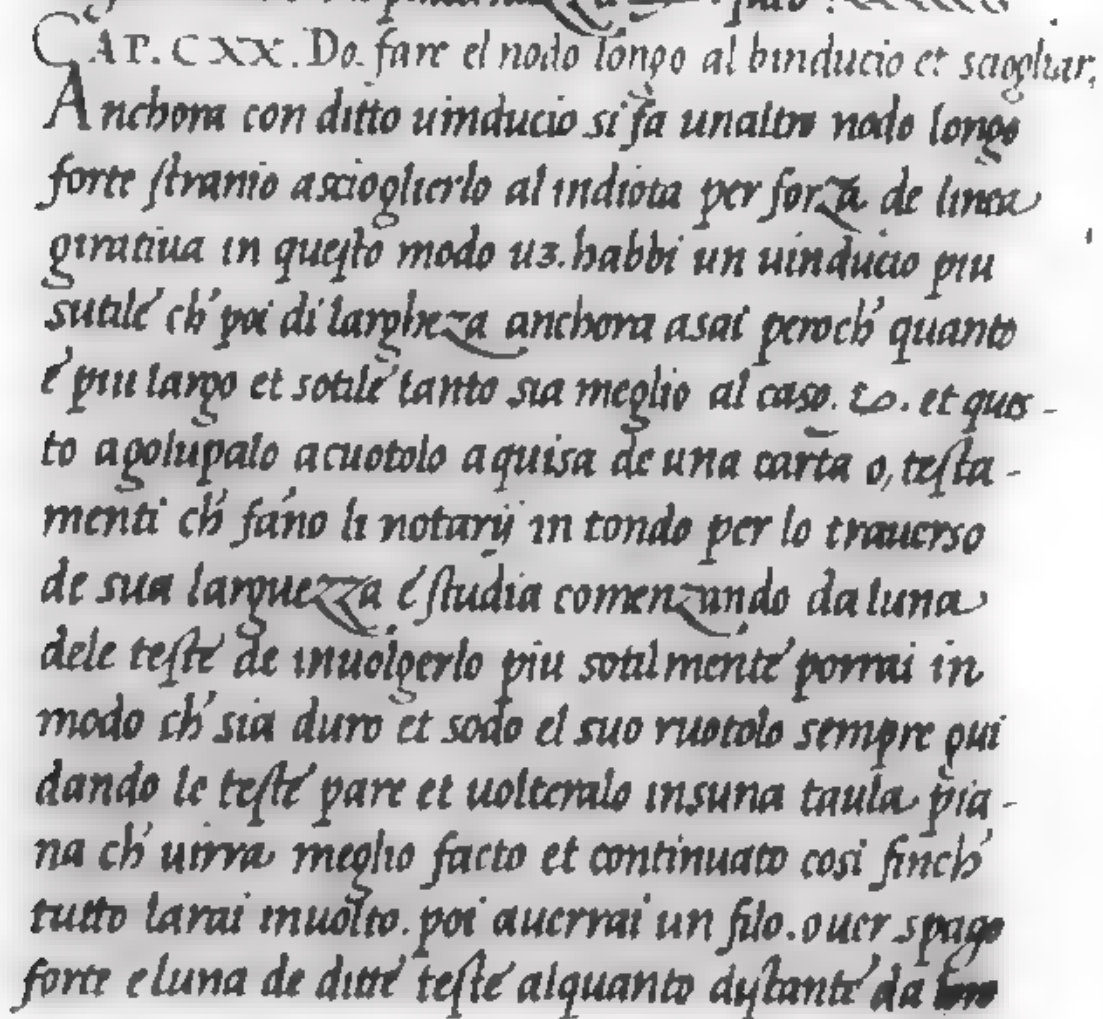 CAP. CXX. Do. fare el nodo longo al binducio et sciogliar.
Anchora con ditto uinducio si fa unaltro nodo longo
forte stranio a scioglierlo al indiota per forza de linea
giratiua in questo modo uz. habbi un uinducio piu
sutile ch' poi di largheza anchora asai peroch' quanto
é piu largo et sotile tanto sia meglio al caso. &c. et ques-
to agolupalo acuotolo aquisa de una carta o, testa-
menti ch' fano li notarij in tondo per lo trauerso
de sua larguezza é studia comenzando da luna
dele teste de inuolgerlo piu sotilmente porrai in
modo ch' sia duro et sodo el suo ruotolo sempre qui
dando le teste pare et uolteralo insuna taula pia-
na ch' uirra meglio facto et continuato cosi finch'
tutto larai inuolto. poi auerrai un filo. ouer spago
forte e luna de ditte teste alquanto distante da